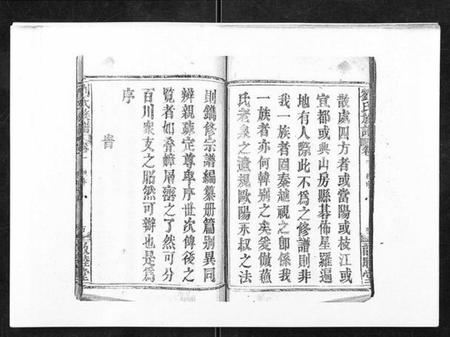 劉氏族譜 卷一
散處四方者或當陽或枝江或
宜都或興山房縣碁佈星羅遍
地有人際此不爲之修譜則非
我一族者固秦越視之卽係我
一族者亦何幹别之矣爰倣蘓
氏老泉之遺規歐陽永叔之法
則鐫修宗譜編纂册篇别異同
辨親疎定尊卑序世次俾後之
覽者如叠嶂層巒之了然可分
百川衆支之昭然可辨也是爲
序